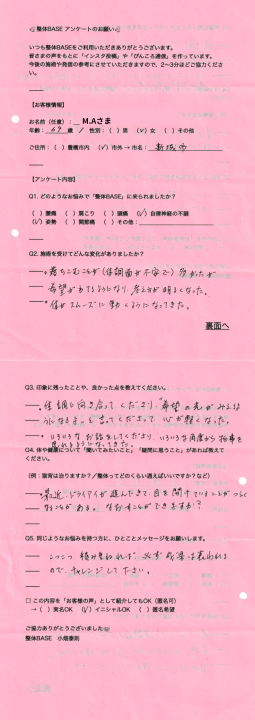 整体BASE アンケートのお願い
いつも整体BASEをご利用いただきありがとうございます。
皆さまの声をもとに「インスタ投稿」や「ぴんころ通信」を作っています。
今後の施術や発信の参考にさせていただきますので、2~3分ほどご協力ください。
【お客様情報】
お名前（任意）： M.Aさま
年齢： 69 歳 / 性別：( ) 男 (✓) 女 ( ) その他
ご住所：( ) 豊橋市内 (✓) 市外 → 市名： 新城市
【アンケート内容】
Q1. どのようなお悩みで「整体BASE」に来られましたか？
( ) 腰痛 ( ) 肩こり ( ) 頭痛 (✓) 自律神経の不調
(✓) 姿勢 ( ) 関節痛 ( ) その他：
Q2. 施術を受けてどんな変化がありましたか？
・落ちこむ心が(体調面が不安で)
希望がもてるようになり、考え方が明るくなった。
・体がスムーズに動くようになってきた。
裏面へ
Q3. 印象に残ったことや、良かった点を教えてください。
・体調に向き合ってくださり、"希望の光がみえる
心が軽くなった。
・いろいろなお話をしてくださり、いろいろな角度から物事を
見れるようになってきた。
Q4. 体や健康について「聞いてみたいこと」「疑問に思うこと」があれば教えてください。
（例：猫背は治りますか？／整体ってどのくらい通えばいいですか？など）
・最近、ドライアイが進んできて、目を開けていることがつらく
なることがある。
Q5. 同じようなお悩みを持つ方に、ひとことメッセージをお願いします。
こつこつ積み重ねれば、必ず効果は表われる
ので、チャレンジして下さい。
□ この内容を「お客様の声」として紹介してもOK（匿名可）
→ ( ) 実名OK (✓) イニシャルOK ( ) 匿名希望
ご協力ありがとうございました
整体BASE 小畑泰則